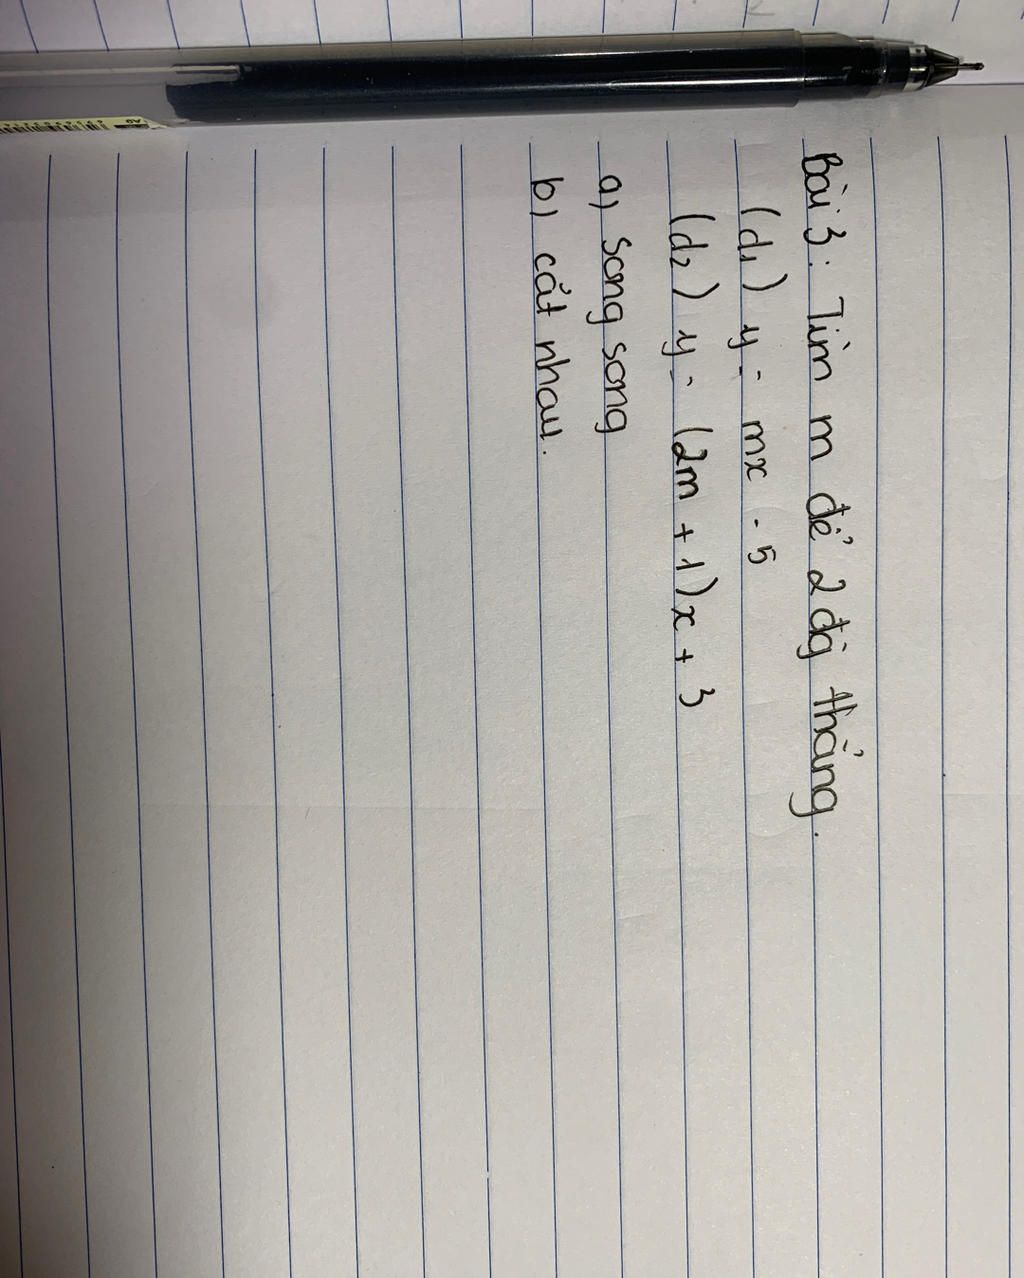 Bài 3: Tìm m để 2 đg thẳng.
(d₁) y = mx - 5
(d₂) y = (2m + 1)x + 3
a) song song
b) cắt nhau.